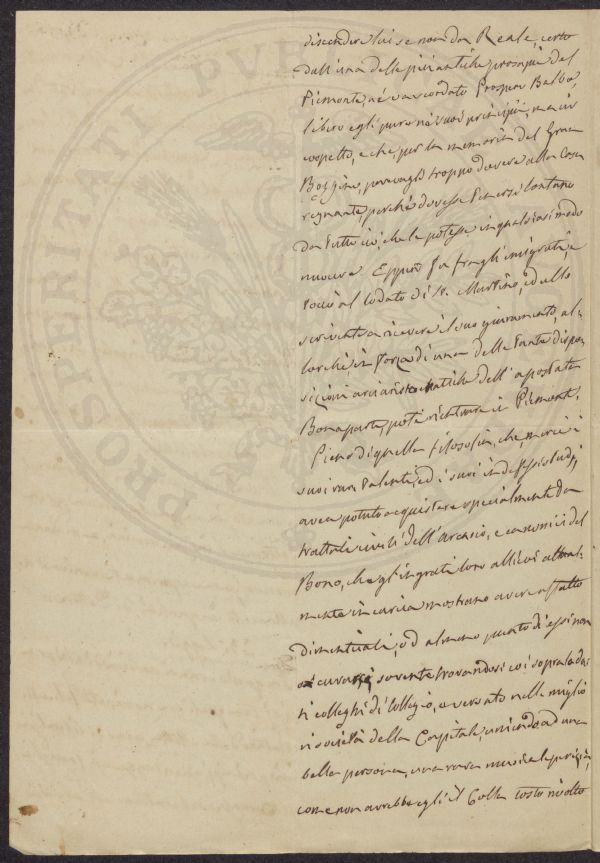 discendere lui se non da Reale, certo
dall'una delle più antiche prosapie del
Piemonte, né va scordato Prospero Balbo,
libero egli pure ne' suoi principii, ma cir
cospetto, e che, per la memoria del Gran
Bogino, parevagli troppo dovere alla Casa
regnante, perché dovesse tenersi lontano
da tutto ciò, che le potesse in qualsiasi modo
nuocere. Eppure fra gl'immigrati, e
toccò al lodato di S. Martino, ed allo
scrivente a ricevere il suo giuramento, al-
lorché, in forza di una delle tante dispo-
sizioni arciaristocratiche dell'apostata
Bonaparte, poté rientrare in Piemonte.
Pieno di quella filosofia, che, mercé i
suoi rari talenti, ed i suoi indefessi studj,
avea potuto acquistare specialmente da
trattati civili dell'Arcasio, e canonici del
Bono, che gl'ingrati loro allievi attual-
mente in carica mostrano avere affatto
dimenticati, od almeno punto di essi non
curarsi, sovente trovandosi coi sopralodati
colleghi di Collegio, e versato nelle miglio
ri società della Capitale, unendo ad una
bella persona, una rara musicale perizia,
come non avrebbe egli il Colla tosto rivolto
PROSPERITATI PUB